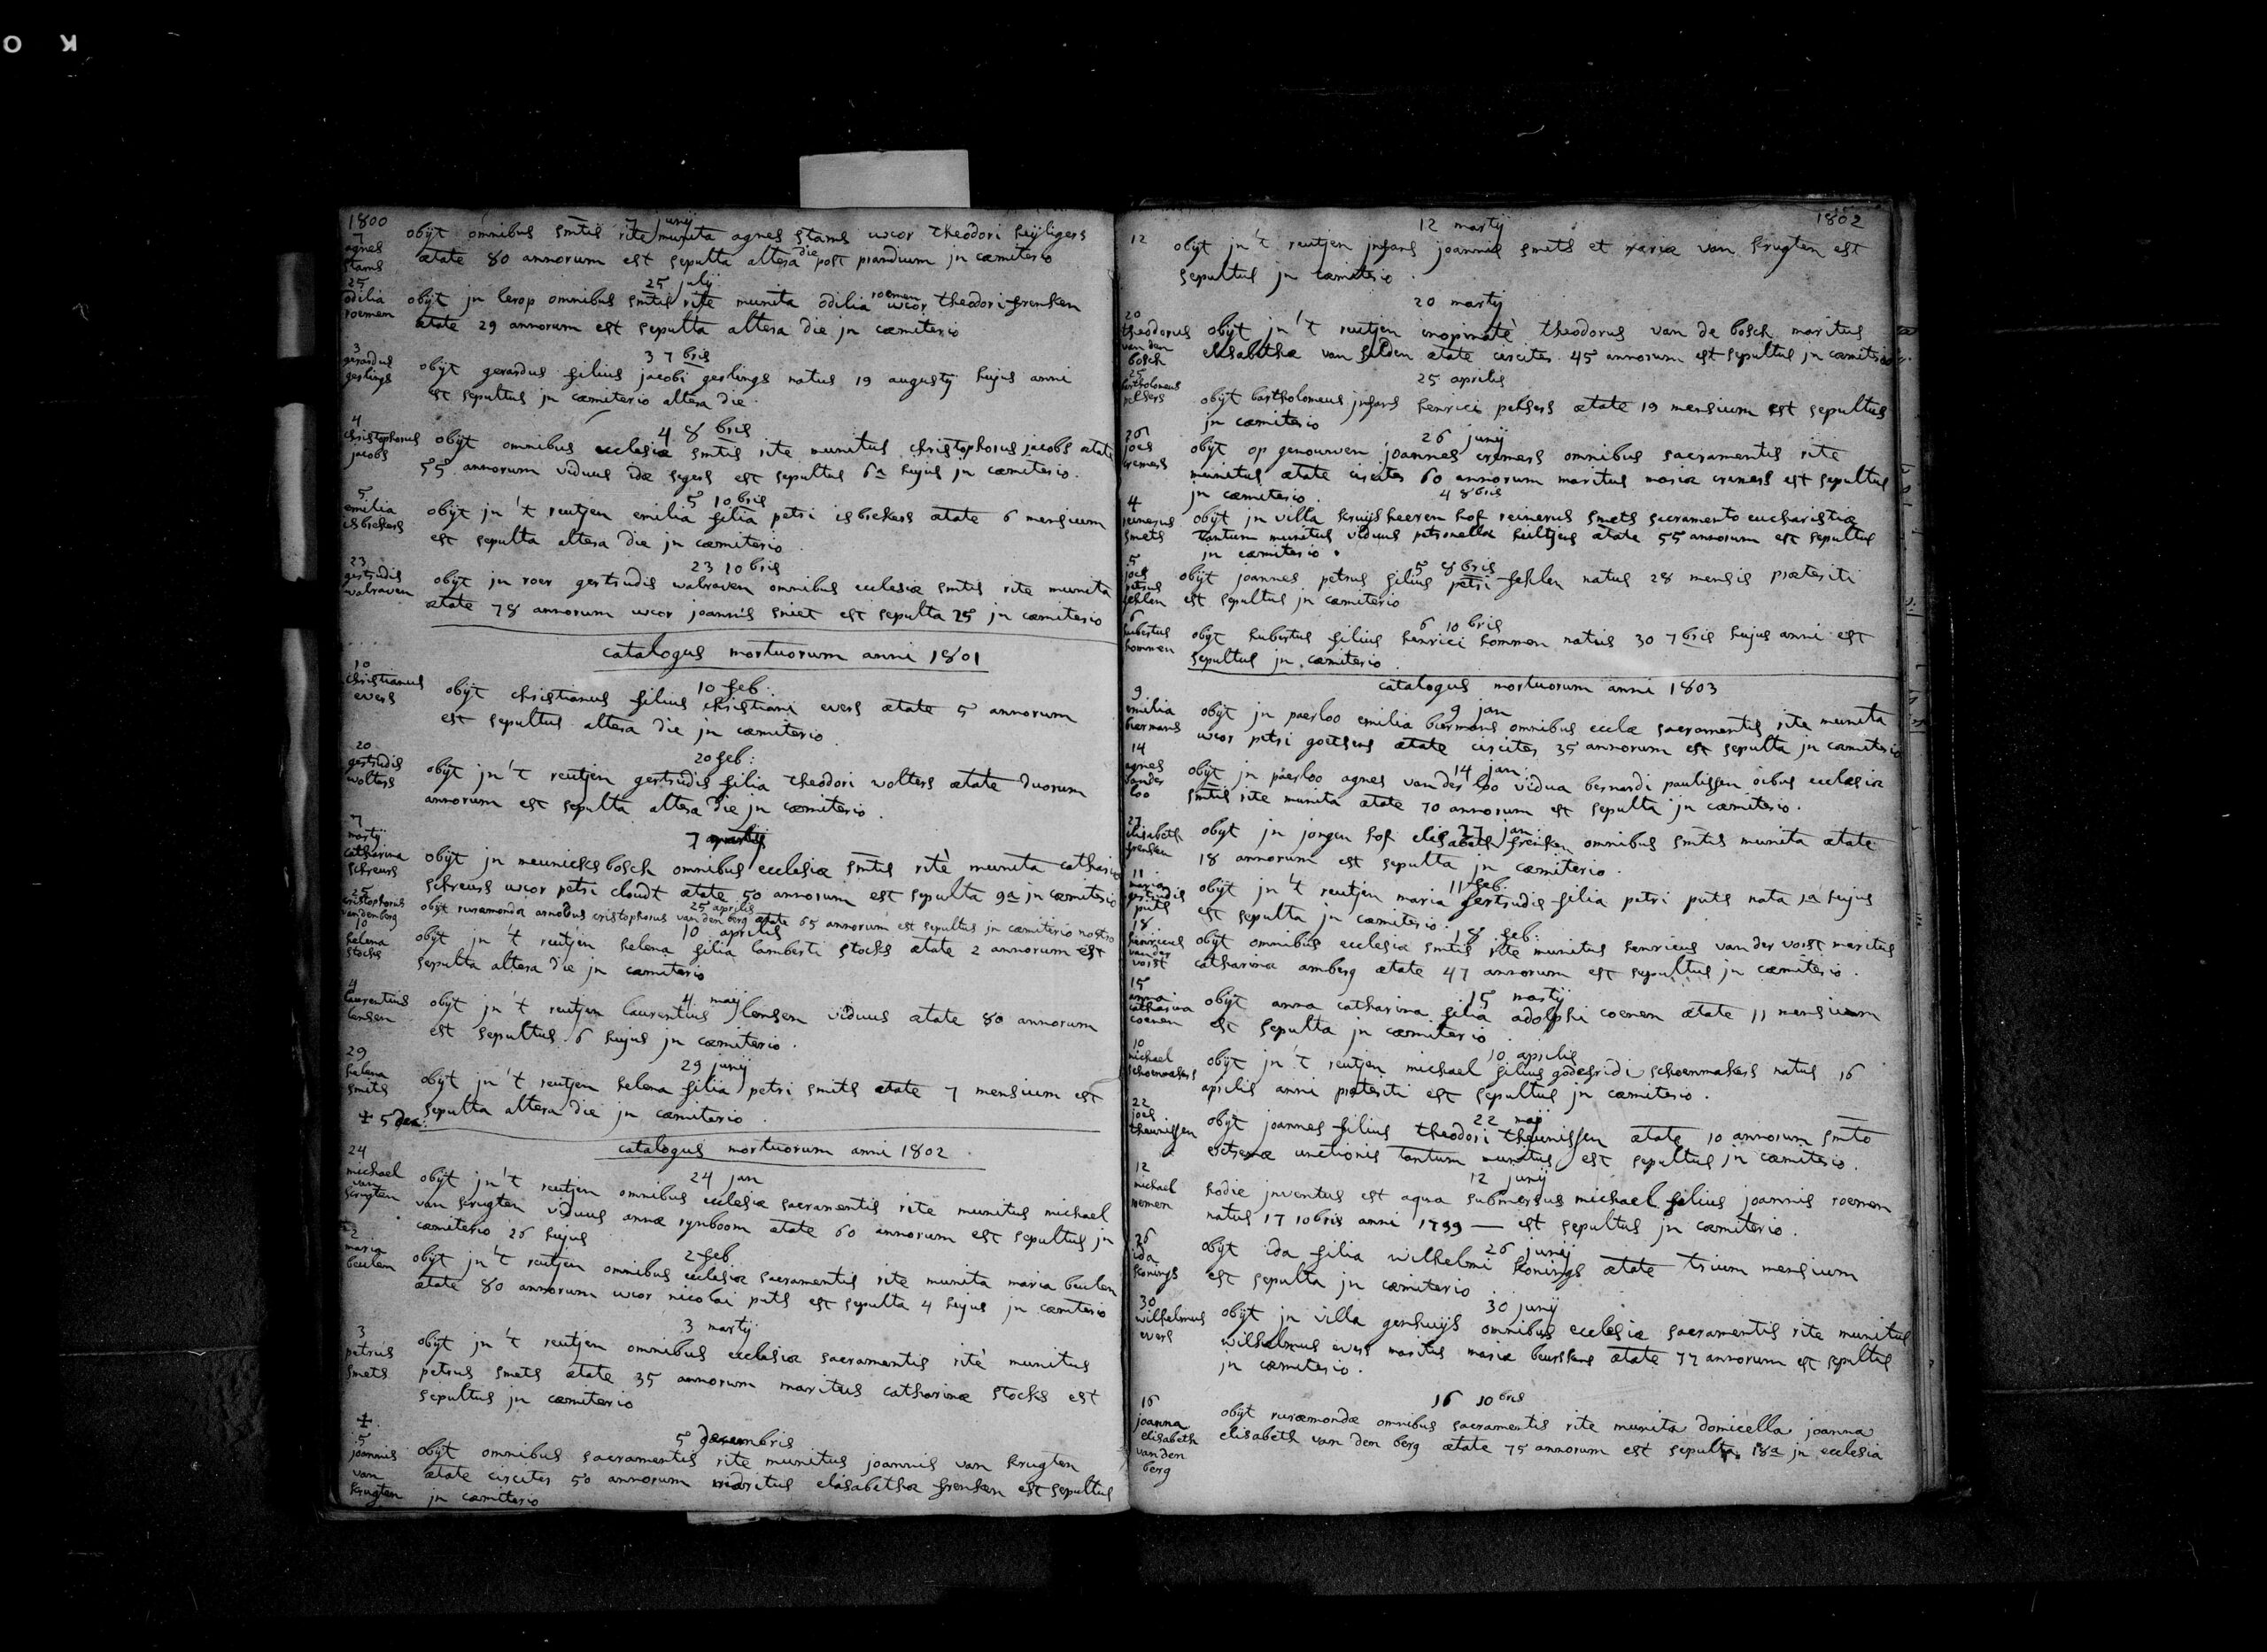 1800
7 junij
7
agnes
stams
obijt omnibus smtis rite munita agnes stams uxor theodori heijligers
ætate 80 annorum est sepulta altera die post prandium jn cæmiterio
25 julij
25
odilia
roemen
obijt jn lerop omnibus smtis rite munita odilia roemen uxor theodori frenken
ætate 29 annorum est sepulta altera die jn cæmiterio
3 7bris
3
gerardus
gerlings
obijt gerardus filius jacobi gerlings natus 19 augustij hujus anni
est sepultus jn cæmiterio altera die
4 8bris
4
christophorus
jacobs
obijt omnibus ecclesiæ smtis rite munitus christophorus jacobs ætate
55 annorum viduus idæ segers est sepultus 6ª hujus jn cæmiterio.
5 10bris
5
emilia
isbickers
obijt jn 't reutjen emilia filia petri isbickers ætate 6 mensium
est sepulta altera die jn cæmiterio
23 10bris
23
gertrudis
walraven
obijt jn roer gertrudis walraven omnibus ecclesiæ smtis rite munita
ætate 78 annorum uxor joannis sniet est sepulta 25 jn cæmiterio
catalogus mortuorum anni 1801
10 feb:
10
christianus
evers
obijt christianus filius christiani evers ætate 5 annorum
est sepultus altera die jn cæmiterio
20 feb:
20
gertrudis
wolters
obijt jn 't reutjen gertrudis filia theodori wolters ætate duorum
annorum est sepulta altera die jn cæmiterio.
7 martij
7
martij
catharina
schreurs
obijt jn meunicksbosch omnibus ecclesiæ smtis ritè munita catharina
schreurs uxor petri cloudt ætate 50 annorum est sepulta 9ª jn cæmiterio
25 aprilis
25
cristophorus
van den berg
obijt ruræmondæ cristophorus van den berg ætate 65 annorum est sepultus jn cæmiterio nostro
10 aprilis
10
helena
stocks
obijt jn 't reutjen helena filia lamberti stocks ætate 2 annorum est
sepulta altera die jn cæmiterio
4 maij
4
laurentius
lensen
obijt jn 't reutjen laurentius lensen viduus ætate 80 annorum
est sepultus 6 hujus jn cæmiterio.
29 junij
29
helena
smits
obijt jn 't reutjen helena filia petri smits ætate 7 mensium est
sepulta altera die jn cæmiterio.
± 5 dec:
catalogus mortuorum anni 1802
24 jan
24
michael
van
krugten
obijt jn 't reutjen omnibus ecclesiæ sacramentis rite munitus michael
van krugten viduus annæ rynboom ætate 60 annorum est sepultus jn
cæmiterio 26 hujus
2 feb
2
maria
beulen
obijt jn 't reutjen omnibus ecclesiæ sacramentis rite munita maria beulen
ætate 80 annorum uxor nicolai puts est sepulta 4 hujus jn cæmiterio
3 martij
3
petrus
smets
obijt jn 't reutjen omnibus ecclesiæ sacramentis ritè munitus
petrus smets ætate 35 annorum maritus catharinæ stocks est
sepultus jn cæmiterio
±
5 decembris
5
joannis
van
krugten
obijt omnibus sacramentis rite munitus joannis van krugten
ætate circiter 50 annorum maritus elisabethæ frenken est sepultus
jn cæmiterio
1802
12 martij
12
obijt jn 't reutjen jnfans joannis smits et mariæ van krugten est
sepultus jn cæmiterio.
20 martij
20
theodorus
van den
bosch
obijt jn 't reutjen inopinatè theodorus van de bosch maritus
elisabethæ van ætate circiter 45 annorum est sepultus jn cæmiterio.
25 aprilis
25
bartholomeus
pelsers
obijt bartholomeus jnfans henrici pelsers ætate 19 mensium est sepultus
jn cæmiterio
26 junij
26
joes
cremers
obijt op genouwen joannes cremers omnibus sacramentis rite
munitus ætate circiter 60 annorum maritus mariæ cremers est sepultus
jn cæmiterio.
4 8bris
4
reinerus
smets
obijt jn villa kruijsheeren hof reinerus smets sacramento eucharistiæ
tantum munitus viduus petronellæ hultjens ætate 55 annorum est sepultus
jn cæmiterio.
5 8bris
5
joes
petrus
fehlen
obijt joannes petrus filius petri fehlen natus 28 mensis præteriti
est sepultus jn cæmiterio
6 10bris
6
hubertus
hommen
obijt hubertus filius henrici hommen natus 30 7bris hujus anni est
sepultus jn cæmiterio
catalogus mortuorum anni 1803
9 jan
9
emilia
biermans
obijt jn paerloo emilia biermans omnibus ecclæ sacramentis rite munita
uxor petri goetsens ætate circiter 35 annorum est sepulta jn cæmiterio
14 jan:
14
agnes
vander
loo
obijt jn paerloo agnes van der loo vidua bernardi paulissen oibus ecclesiæ
smtis rite munita ætate 70 annorum est sepulta jn cæmiterio.
27 jan
27
elisabeth
frenken
obijt jn jongen hof elisabeth frenken omnibus smtis munita ætate
18 annorum est sepulta jn cæmiterio.
11 feb.
11
maria
gertrudis
puts
obijt jn 't reutjen maria gertrudis filia petri puts nata 1ª hujus
est sepulta jn cæmiterio.
18 feb:
18
henricus
van der
voist
obijt omnibus ecclesiæ smtis rite munitus henricus van der voist maritus
catharinæ amberg ætate 47 annorum est sepultus jn cæmiterio.
15 martij
15
anna
catharina
coenen
obijt anna catharina filia adolphi coenen ætate 11 mensium
est sepulta jn cæmiterio
10 aprilis
10
michael
schoenmakers
obijt jn 't reutjen michael filius godefridi schoenmakers natus 16
aprilis anni præteriti est sepultus jn cæmiterio.
22 maij
22
joes
theunissen
obijt joannes filius theodori theunissen ætate 10 annorum smto
extremæ unctionis tantum munitus est sepultus jn cæmiterio.
12 junij
12
michael
roemen
hodie jnventus est aqua submersus michael filius joannis roemen
natus 17 10bris anni 1799 — est sepultus jn cæmiterio.
26 junij
26
ida
konings
obijt ida filia wilhelmi konings ætate trium mensium
est sepulta jn cæmiterio
30 junij
30
wilhelmus
evers
obijt jn villa genhuijs omnibus ecclesiæ sacramentis rite munitus
wilhelmus evers maritus mariæ beurskens ætate 77 annorum est sepultus
jn cæmiterio.
16 10bris
16
joanna
elisabeth
van den
berg
obijt ruræmondæ omnibus sacramentis rite munita domicella joanna
elisabeth van den berg ætate 75 annorum est sepulta 18ª jn ecclesia